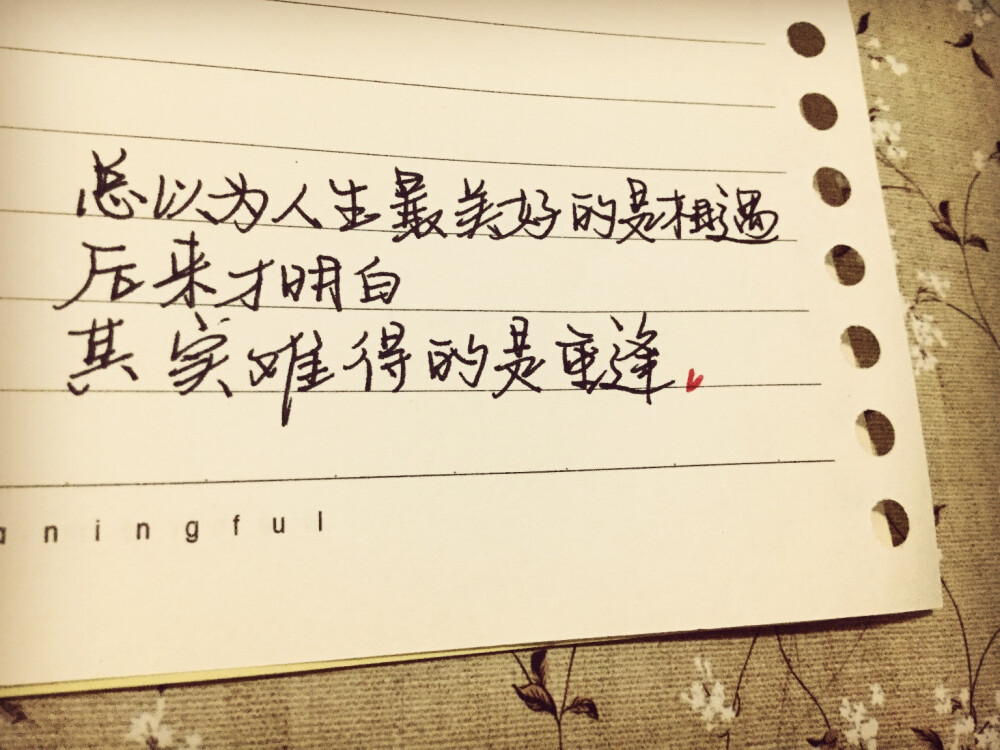 总以为人生最美好的是相遇
后来才明白
其实难得的是重逢
aningful